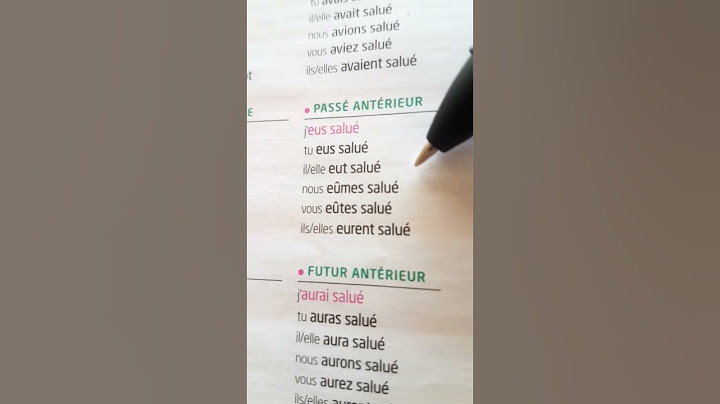 il/elle avait salué
nous avions salué
vous aviez salué
ils/elles avaient salué
E
• PASSÉ ANTÉRIEUR
j'eus salué
tu eus salué
il/elle eut salué
nous eûmes salué
vous eûtes salué
ils/elles eurent salué
• FUTUR ANTÉRIEUR
j'aurai salué
tu auras salué
il/elle aura salué
nous aurons salué
vous aurez salué
ils/elles